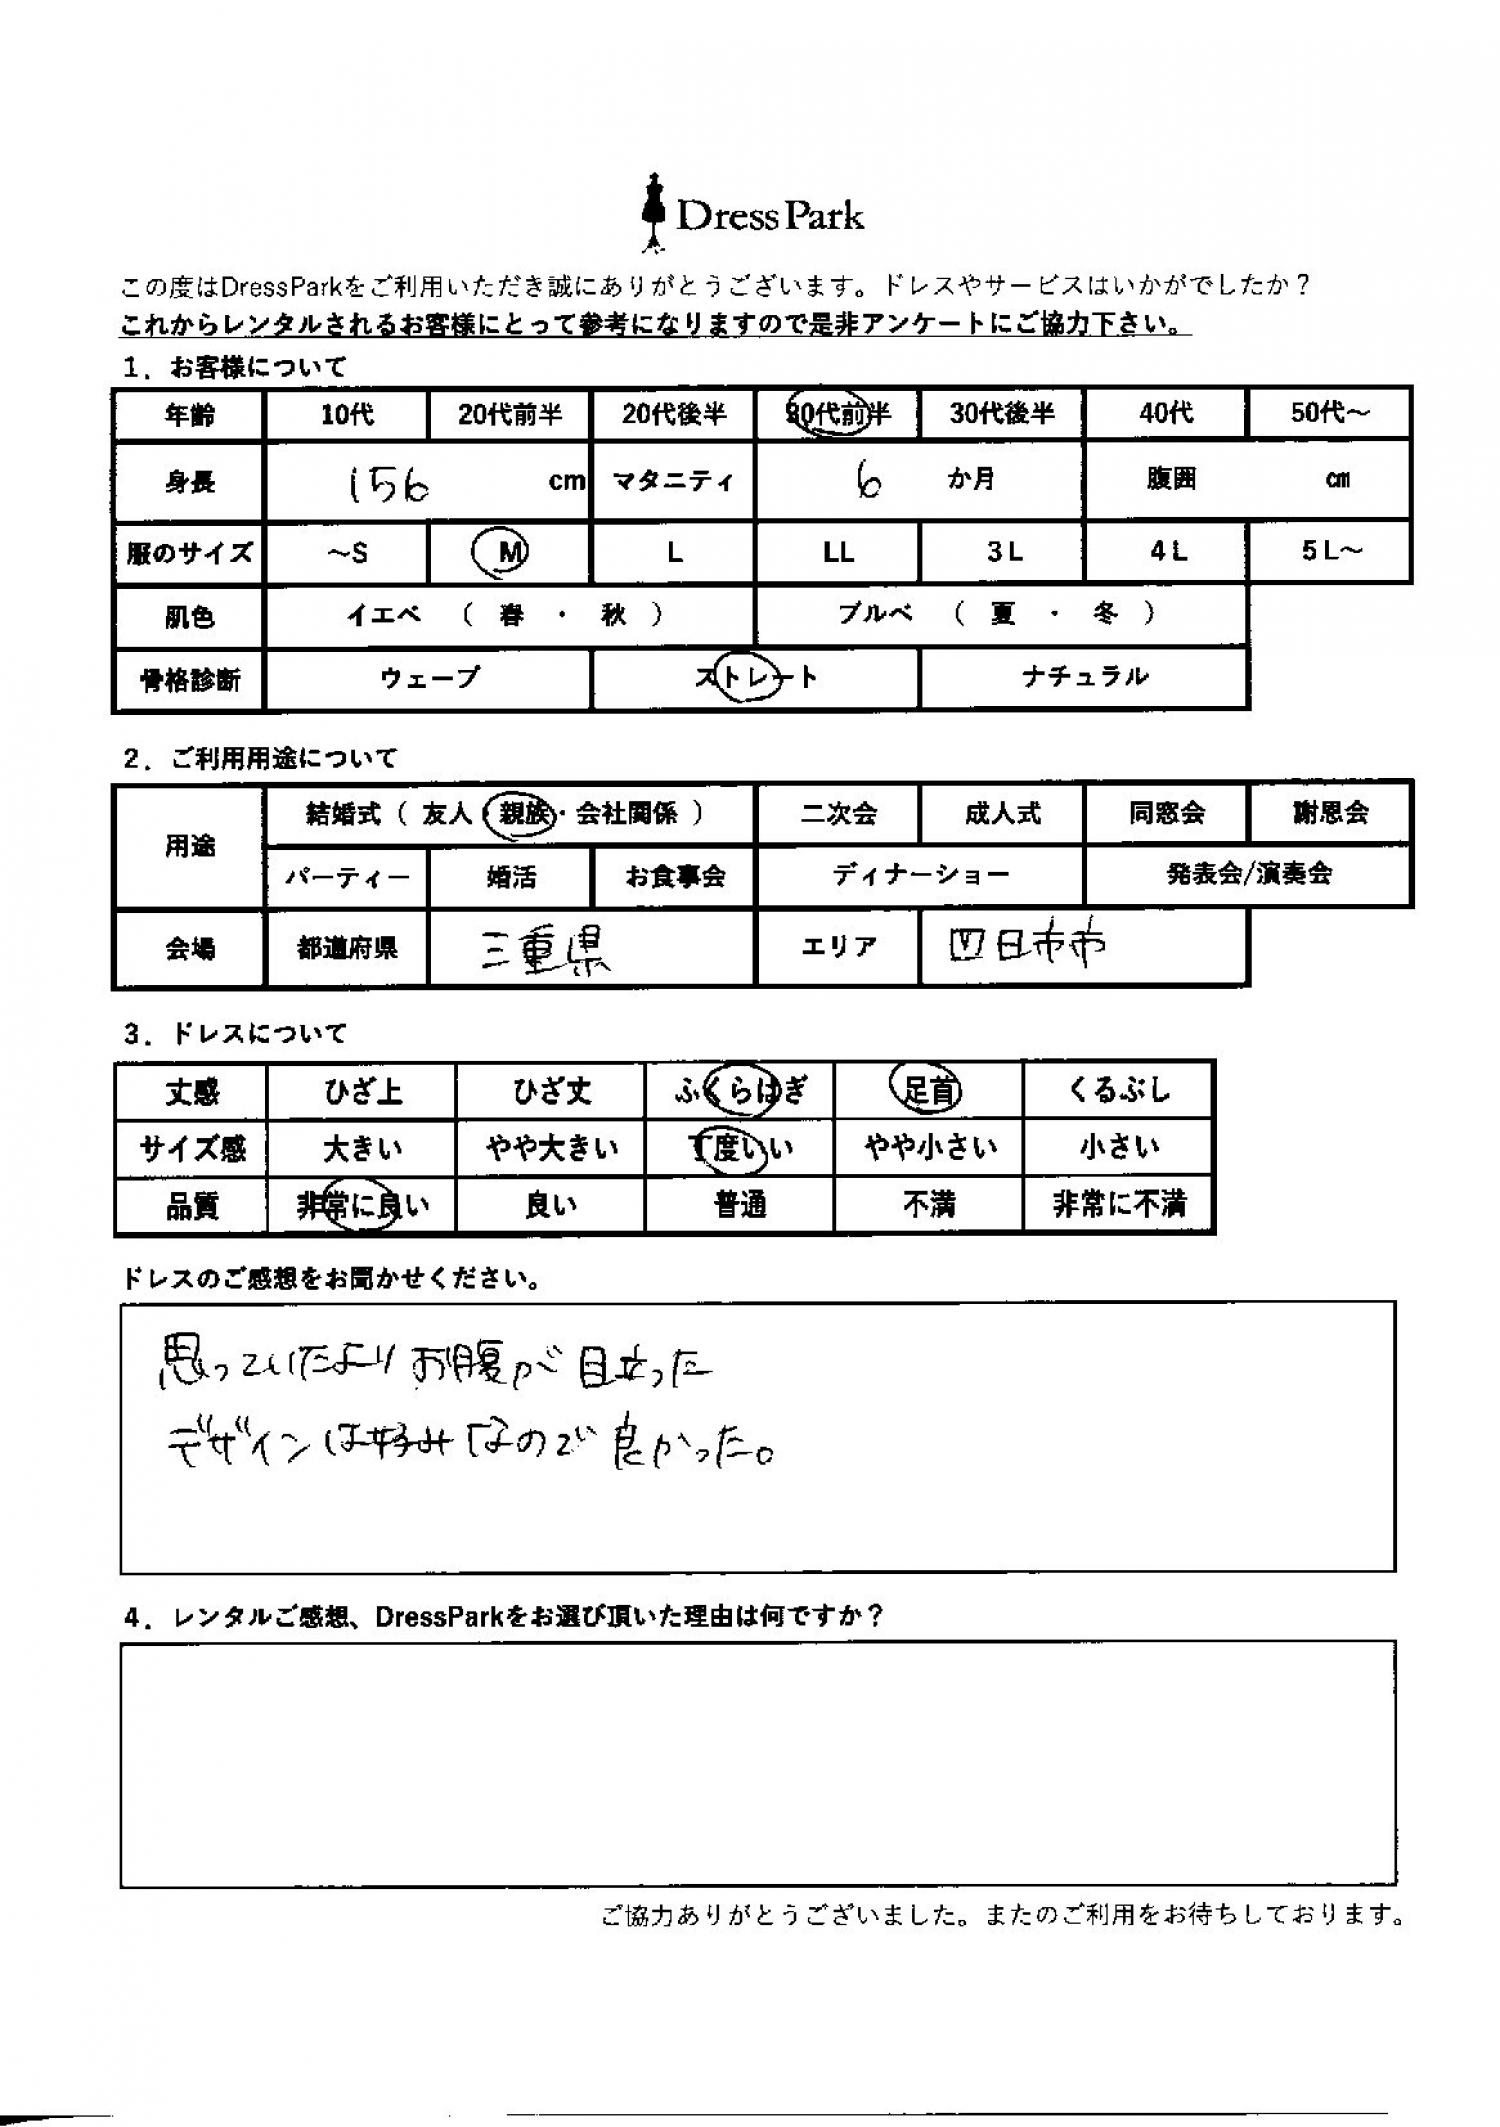 Dress Park
この度はDressParkをご利用いただき誠にありがとうございます。ドレスやサービスはいかがでしたか？
これからレンタルされるお客様にとって参考になりますので是非アンケートにご協力下さい。
1．お客様について
年齢 10代 20代前半 20代後半 30代前半 30代後半 40代 50代〜
身長 156 cm マタニティ 6 か月 腹囲 cm
服のサイズ 〜S M L LL 3L 4L 5L〜
肌色 イエベ （ 春 ・ 秋 ） ブルベ （ 夏 ・ 冬 ）
骨格診断 ウェーブ ストレート ナチュラル
2．ご利用用途について
用途 結婚式（ 友人・親族・会社関係 ） 二次会 成人式 同窓会 謝恩会
パーティー 婚活 お食事会 ディナーショー 発表会/演奏会
会場 都道府県 三重県 エリア 四日市市
3．ドレスについて
丈感 ひざ上 ひざ丈 ふくらはぎ 足首 くるぶし
サイズ感 大きい やや大きい 丁度いい やや小さい 小さい
品質 非常に良い 良い 普通 不満 非常に不満
ドレスのご感想をお聞かせください。
思っていたよりお腹が目立った
デザインは好みなので良かった。
4．レンタルご感想、DressParkをお選び頂いた理由は何ですか？
ご協力ありがとうございました。またのご利用をお待ちしております。